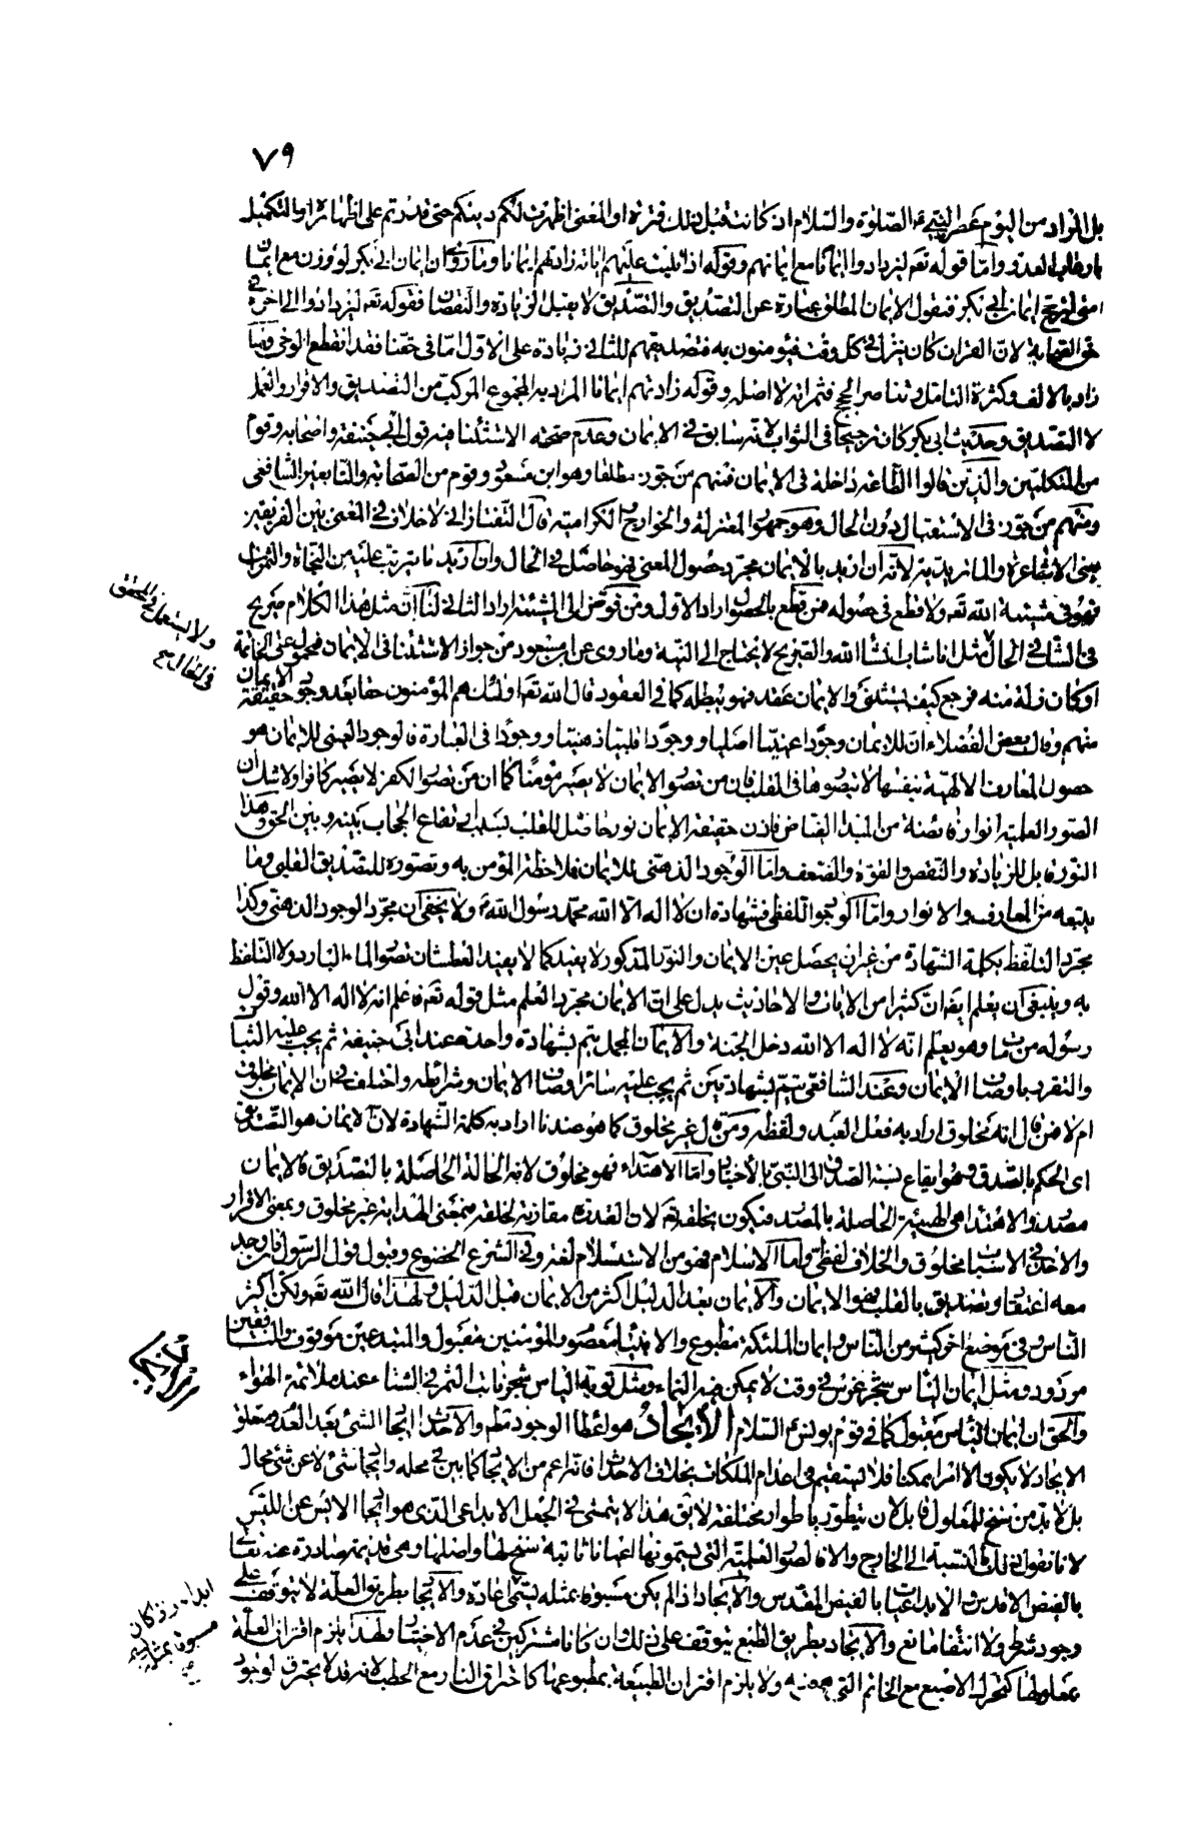 ٧٩
بل المراد من اليوم عصر النبي عم الصلوة والسلام اذ كانت قبل ذلك فترة او المعنى اظهرت لكم دينكم حتى قدرتم على اظهاره او التكميل
بارهاب العدو واما قوله تعم ليزدادوا ايمانا مع ايمانهم وقوله اذا تليت عليهم اياته زادتهم ايمانا وما روى ان ايمان ابي بكر لو وزن مع ايمان
امتي لرجح ايمان ابي بكر فنقول الايمان المطلق عبارة عن التصديق والتصديق لا يقبل الزيادة والنقصان فقوله تعم ليزدادوا الى اخره في
حق الصحابة لان القران كان ينزل في كل وقت فيؤمنون به فتصديقهم للثاني زيادة على الاول اما في حقنا فقد انقطع الوحي وما
زاد بالالف وكثرة التامل وتناصر الحجج فثمراته لا اصله وقوله زادتهم ايمانا المراد به المجموع المركب من التصديق والاقرار والعمل
لا التصديق وحديث ابي بكر كان ترجيحا في الثواب لانه سابق في الايمان وعدم صحة الاستثناء فيه قول ابي حنيفة واصحابه وقوم
من المتكلمين والذين قالوا الطاعة داخلة في الايمان فمنهم من جوز مطلقا وهو ابن مسعود وقوم من الصحابة والتابعين والشافعي
ومنهم من جوز في الاستقبال دون الحال وهو جمهور المعتزلة والخوارج والكرامية قال التفتازاني لا خلاف في المعنى بين الفريقين
يعني الاشاعرة والماتريدية لانه ان اريد بالايمان مجرد حصول المعنى فهو حاصل في الحال وان اريد ما يترتب عليه من النجاة والثمرات
فهو في مشيئة الله تعم ولا قطع في حصوله فمن قطع بالحصول اراد الاول ومن فوض الى المشيئة اراد الثاني لنا انه مثل هذا الكلام صريح
في الشك في الحال مثل انا شاب انشاء الله والصريح لا يحتاج الى النية وما روي عن ابن مسعود من جواز الاستثناء في الايمان فمحمول على الخاتمة
او كان زلة منه فرجع كيف يستثنى والايمان عقد فهو يبطله كما في العقود قال الله تعم اولئك هم المؤمنون حقا بعد وجود حقيقة الايمان
منهم وقال بعض الفضلاء ان للايمان وجودا عينيا اصليا ووجودا قلبيا ذهنيا ووجودا في العبارة فالوجود العيني للايمان هو
حصول المعارف الالهية بنفسها لا بتصورها في القلب فان من تصور الايمان لا يصير مؤمنا كما ان من تصور الكفر لا يصير كافرا ولا شك ان
الصور العلمية انوار فائضة من المبدأ الفياض فاذن حقيقة الايمان نور حاصل للقلب بسبب ارتفاع الحجاب بينه وبين الحق وهذا
النور قابل للزيادة والنقص والقوة والضعف واما الوجود الذهني للايمان فملاحظة المؤمن به وتصوره للتصديق القلبي وما
يتبعه من المعارف والانوار واما الوجود اللفظي فشهادة ان لا اله الا الله محمد رسول الله ولا يخفى ان مجرد الوجود الذهني وكذا
مجرد التلفظ بكلمة الشهادة من غير ان يحصل عين الايمان والنور المذكور لا يفيد كما لا يفيد العطشان تصور الماء البارد ولا التلفظ
به وينبغي ان يعلم ايضا ان كثيرا من الايات والاحاديث يدل على ان الايمان مجرد العلم مثل قوله تعم فاعلم انه لا اله الا الله وقول
رسوله من مات وهو يعلم انه لا اله الا الله دخل الجنة والايمان المجمل يتم بشهادة واحدة عند ابي حنيفة ثم يجب عليه الثبات
والتقرر باوصاف الايمان وعند الشافعي يتم بشهادتين ثم يجب عليه سائر اوصاف الايمان وشرائطه واختلف في ان الايمان مخلوق
ام لا فمن قال انه مخلوق اراد به فعل العبد ولفظه ومن قال غير مخلوق كما هو عندنا اراد به كلمة الشهادة لان الايمان هو التصديق
اي الحكم بالصدق وهو ايقاع نسبة الصدق الى النبي بالاختيار واما الاهتداء فهو مخلوق لانه الحالة الحاصلة بالتصديق فالايمان
مصدر والاهتداء هي الهيئة الحاصلة بالمصدر فيكون بخلقه تعم لان القدرة مقارنة لخلقه فبمعنى الهداية غير مخلوق وبمعنى الاقرار
والاخذ في الاسباب مخلوق والخلاف لفظي واما الاسلام فهو من الاستسلام لغة وفي الشرع الخضوع وقبول قول الرسول فان وجد
معه اعتقاد وتصديق بالقلب فهو الايمان والايمان بعد الدليل اكثر من الايمان قبل الدليل ولهذا قال الله تعم ولكن اكثر
الناس وفي موضع اخر كثير من الناس وايمان الملئكة مطبوع والانبياء معصوم والمؤمنين مقبول والمبتدعين موقوف والمنافقين
مردود ومثل ايمان الباس شجر غرس في وقت لا يمكن فيه النماء ومثل توبة الباس شجر نابت اثمر في الشتاء عند ملائمة الهواء
والحق ان ايمان الباس مقبول كما في قوم يونس عم السلام الايجاد هو اعطاء الوجود مطلقا والاحداث ايجاد الشئ بعد العدم ومتعلق
الايجاد لا يكون الا امرا ممكنا فلا يستقيم في اعدام الملكات بخلاف الاحداث فانه اعم من الايجاد كما بين في محله وايجاد شئ لا عن شئ محال
بل لا بد من سنخ للمعلول قابل لان يتطور باطوار مختلفة لا يق هذا لا يتمشى في الجعل الابداعي الذي هو ايجاد الايس عن الليس
لانا نقول ذلك بالنسبة الى الخارج والا فالصور العلمية التي يسمونها اعيانا ثابتة سنخ لها واصلها وهي قديمة صادرة عنه تعالى
بالفيض الاقدس والابداعيات بالفيض المقدس والايجاد اذا لم يكن مسبوقا بمثله يسمى اعادة والايجاد بطريق العلة لا يتوقف على
وجود شرط ولا انتفاء مانع والايجاد بطريق الطبع يتوقف على ذلك وان كانا مشتركين في عدم الاختيار ولهذا يلزم اقتران العلة
بمعلولها كتحرك الاصبع مع الخاتم التي هو فيه ولا يلزم اقتران الطبيعة بمطبوعها كاحتراق النار مع الحطب لانه قد لا يحترق لوجود
ولا يستعمل في المحقق
في الحال
الايجاد
ابداء واذ كان
مسبوقا بمثله